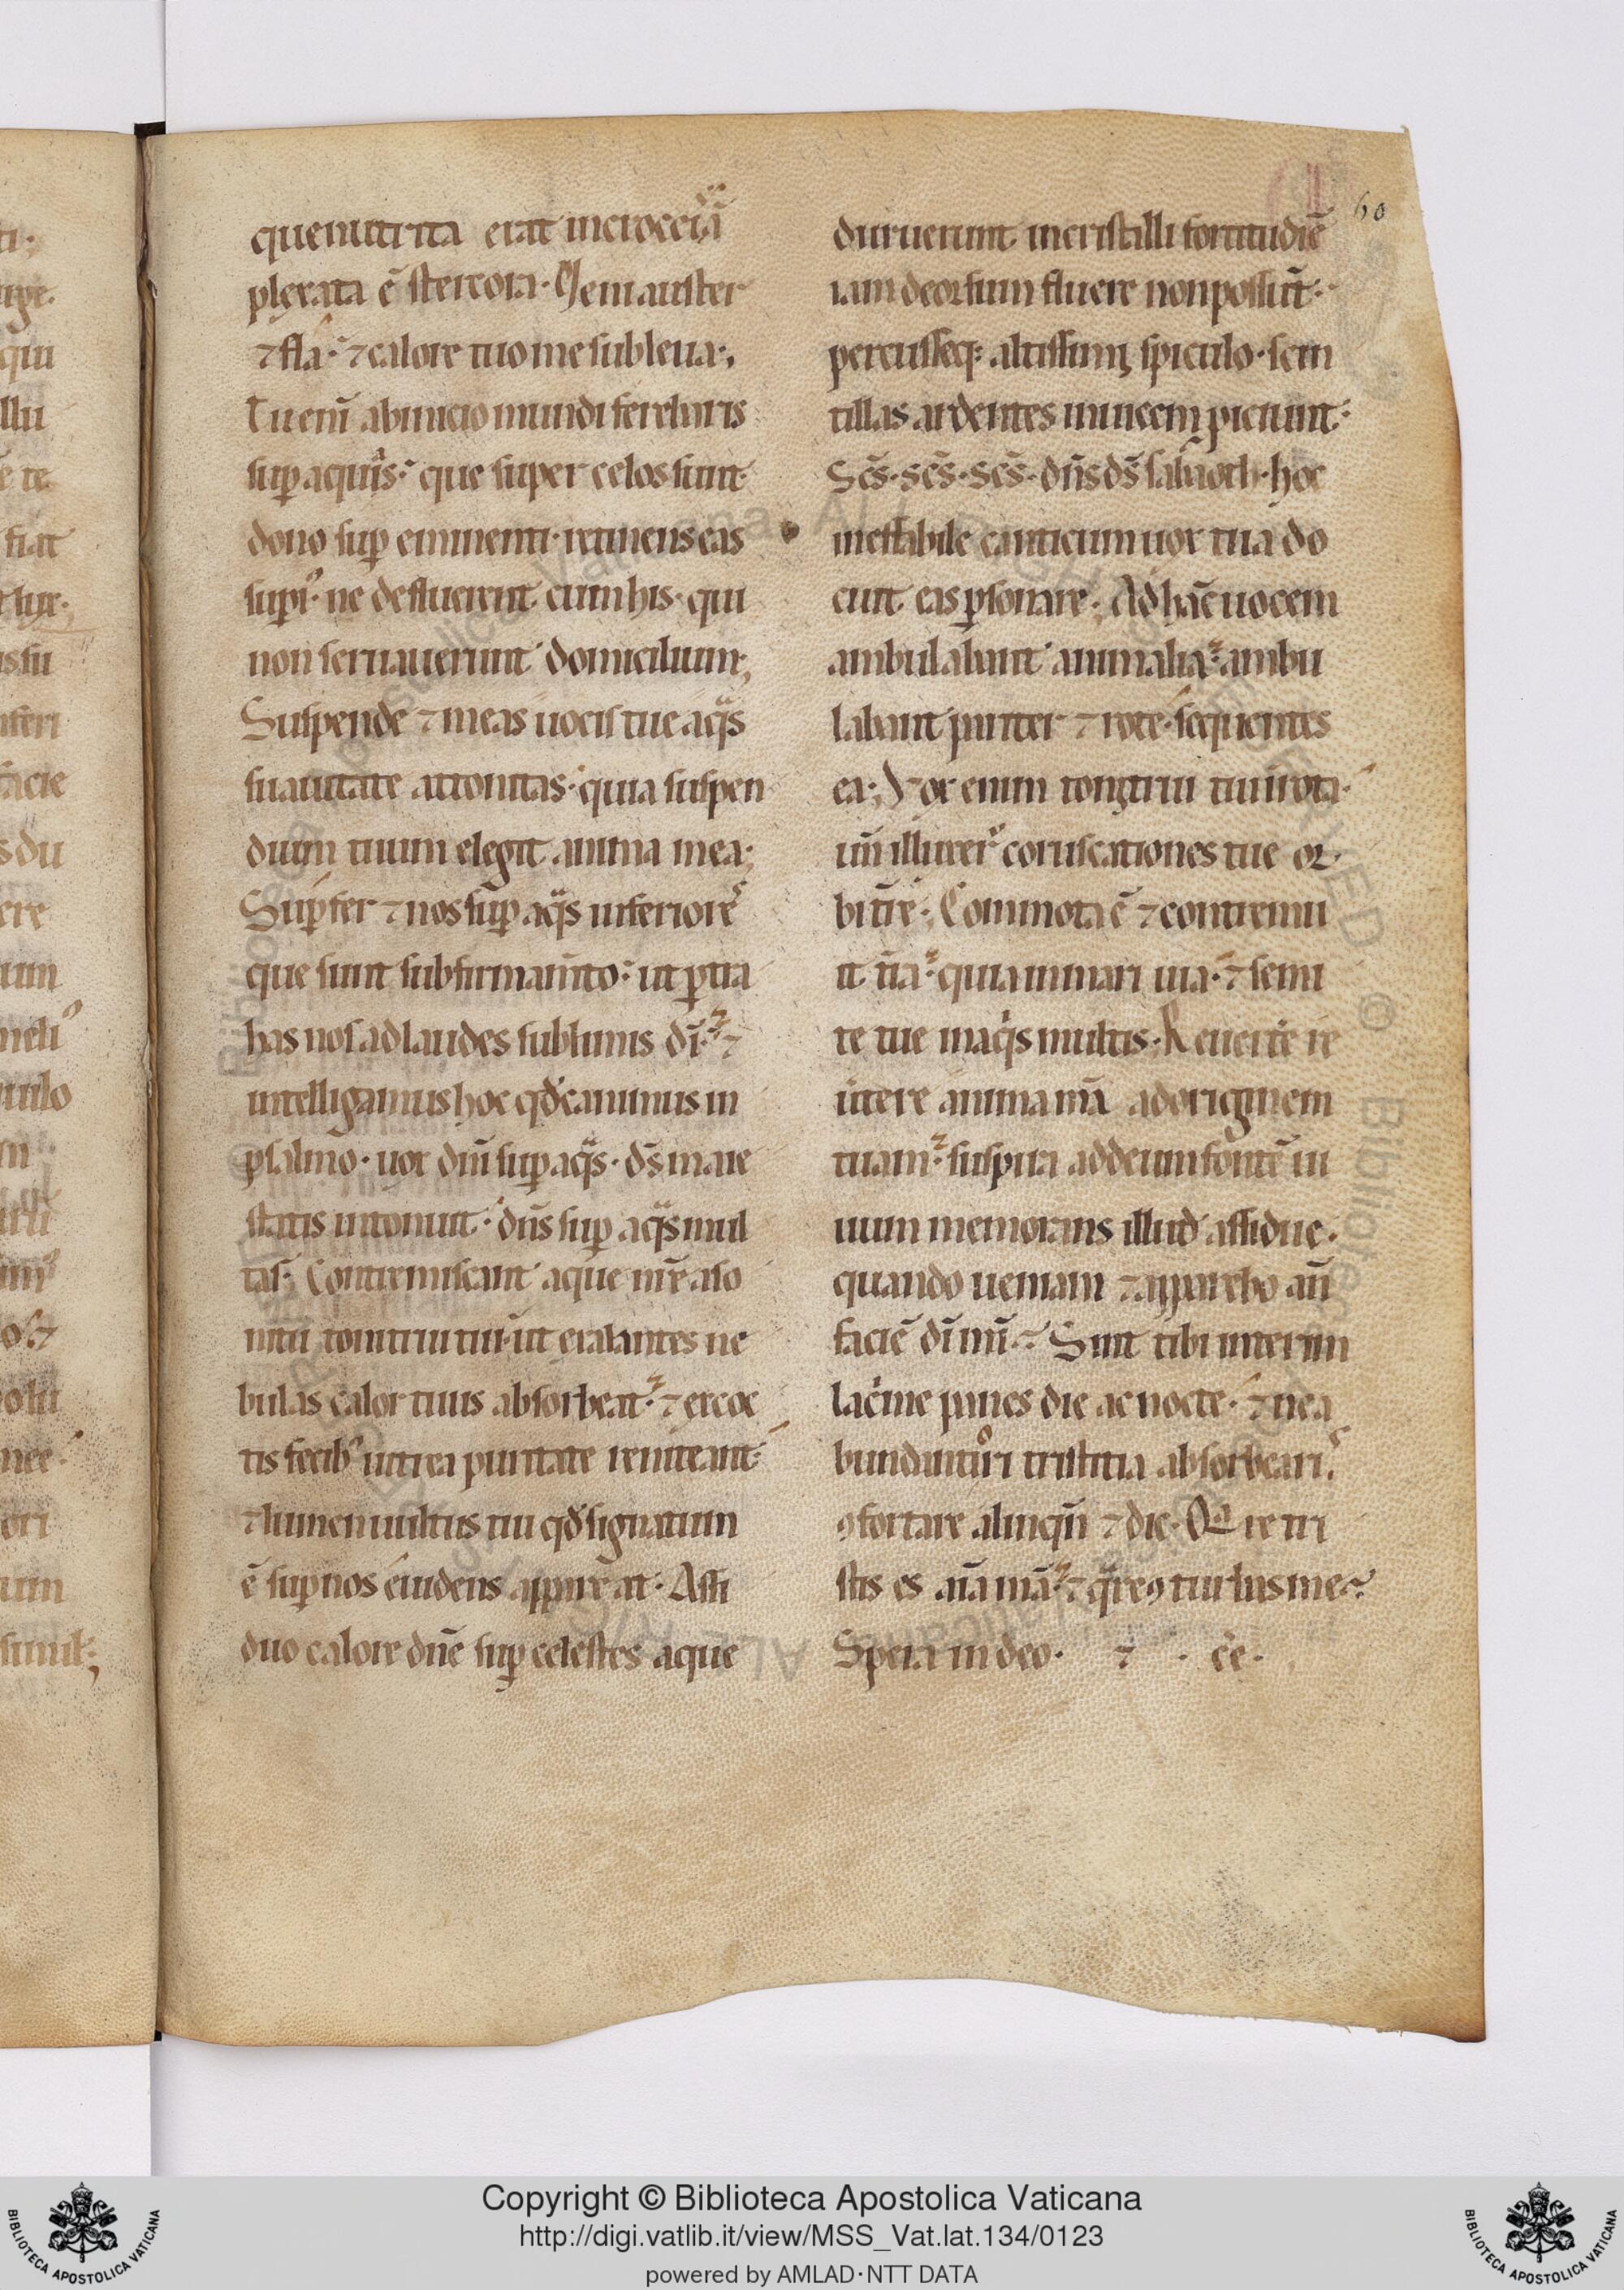 60
que nutrita erat in crocea am
plexata ē stercora. Veni auster
⁊ fla. ⁊ calore tuo me subleua.
Tu eni̅ ab inicio mundi ferebaris
sup̲ aquas. que super celos sunt
dono sup̲ eminenti. retinens eas
sup̲i. ne defluerent cum his. qui
non seruauerunt domicilium.
Suspende ⁊ meas uocis tue aqͣs
suauitate attonitas. quia suspen
dium tuum elegit anima mea.
Sup̲fer ⁊ nos sup̲ aqͣs inferiores
que sunt sub firmam̅to. ut p̲ tra
has nos ad laudes sublimis di̅. ⁊
intelligamus hoc qd̓ canimus in
psalmo. uox dn̅i sup̲ aqͣs. ds̅ maie
statis intonuit. dn̅s sup̲ aqͣs mul
tas. Contremiscant aque nr̅e a so
nitu tonitrui tui. ut exalantes ne
bulas calor tuus absorbeat. ⁊ excoc
tis fecibꝰ uitrea puritate reniteant.
⁊ lumen uultus tui qd̓ signatum
ē sup̲ nos euidens appareat. Assi
duo calore dn̅e sup̲ celestes aque
duruerunt in cristalli fortitudinē
iam deorsum fluere non possūt.
percusseq; altissimi spiculo. scin
tillas ardentes in uicem piciunt.
Sc̅s. sc̅s. sc̅s. dn̅s ds̅ sabaoth. hoc
ineffabile canticum uox tua do
cuit eas p̲sonare. Ad hāc uocem
ambulabant animalia. ambu
labant pariter ⁊ rote. sequentes
ea. Vox enim tonitrui tui in rota.
un̅ illuxerꝰ coruscationes tue or
bi tr̅e. Commota ē ⁊ contremu
it tr̅a. quia in mari uia. ⁊ semi
te tue in aqͥs multis. Reuertere re
uertere anima mā ad originem
tuam. suspira ad deum fontē ui
uum memorans illud assidue.
quando ueniam ⁊ apparebo an̅
faciē di̅ mi̅. Sint tibi interim
lac̓me panes die ac nocte. ⁊ ne a
bundantiori tristitia absorbearis
ꝯfortare alinqn̅ ⁊ dic. Qͣre tri
stis es an̅a mā. ⁊ qͣre ꝯturbas me.
Spera in deo. ⁊ . ce̅.
Copyright © Biblioteca Apostolica Vaticana
http://digi.vatlib.it/view/MSS_Vat.lat.134/0123
powered by AMLAD·NTT DATA
BIBLIOTECA APOSTOLICA VATICANA
BIBLIOTECA APOSTOLICA VATICANA